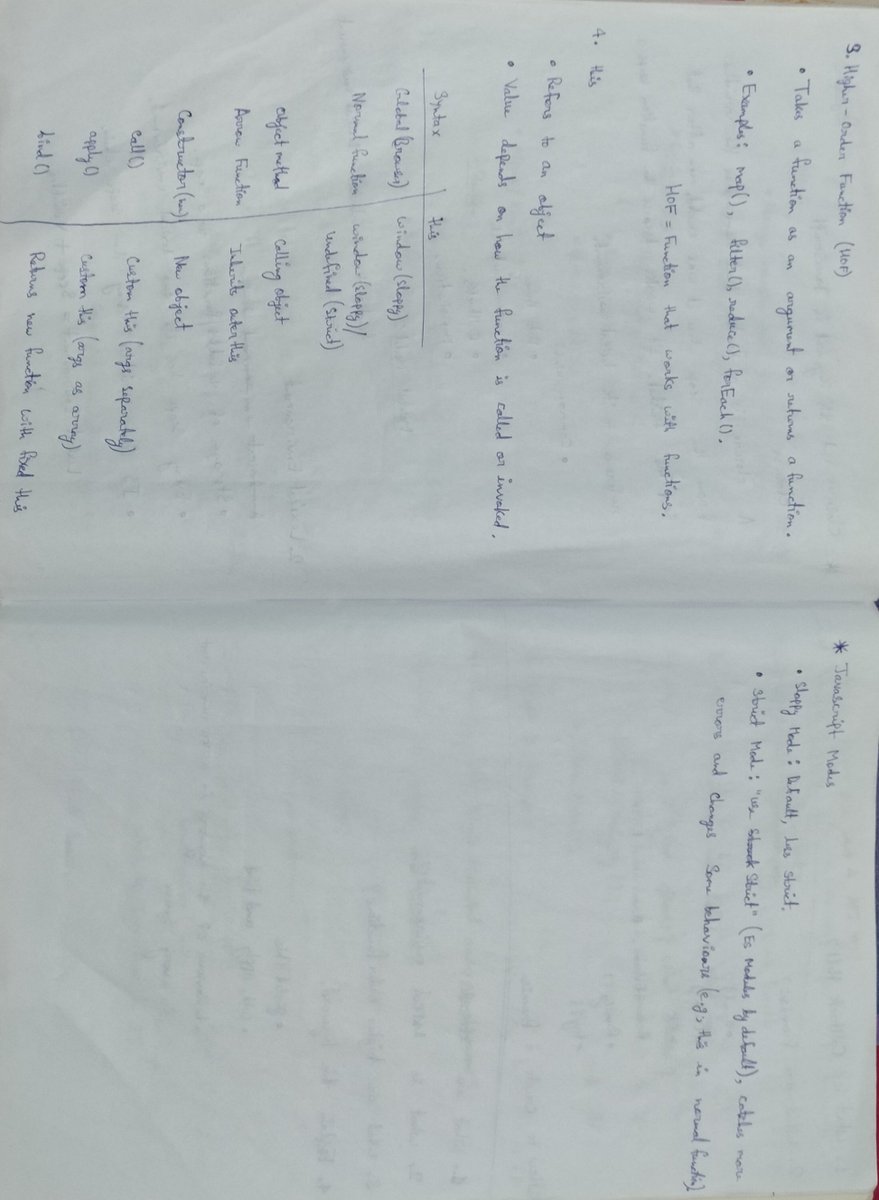 3. Higher-Order Function (HOF)
• Takes a function as an argument or returns a function.
• Examples: map(), filter(), reduce(), forEach().
HOF = Function that works with functions.
4. this
• Refers to an object
• Value depends on how the function is called or invoked.
Syntax this
Global (Browser) window (Sloppy)
Normal function window (Sloppy)/
undefined (Strict)
Object method Calling object
Arrow Function Inherits outer this
Constructor (new) New object
call() Custom this (args separately)
apply() Custom this (args as array)
bind() Returns new function with fixed this
* Javascript Modes
• Sloppy Mode: Default, less strict.
• Strict Mode: "use Strict" (Es Modules by default), catches more
errors and changes some behaviours (e.g., this in normal function)